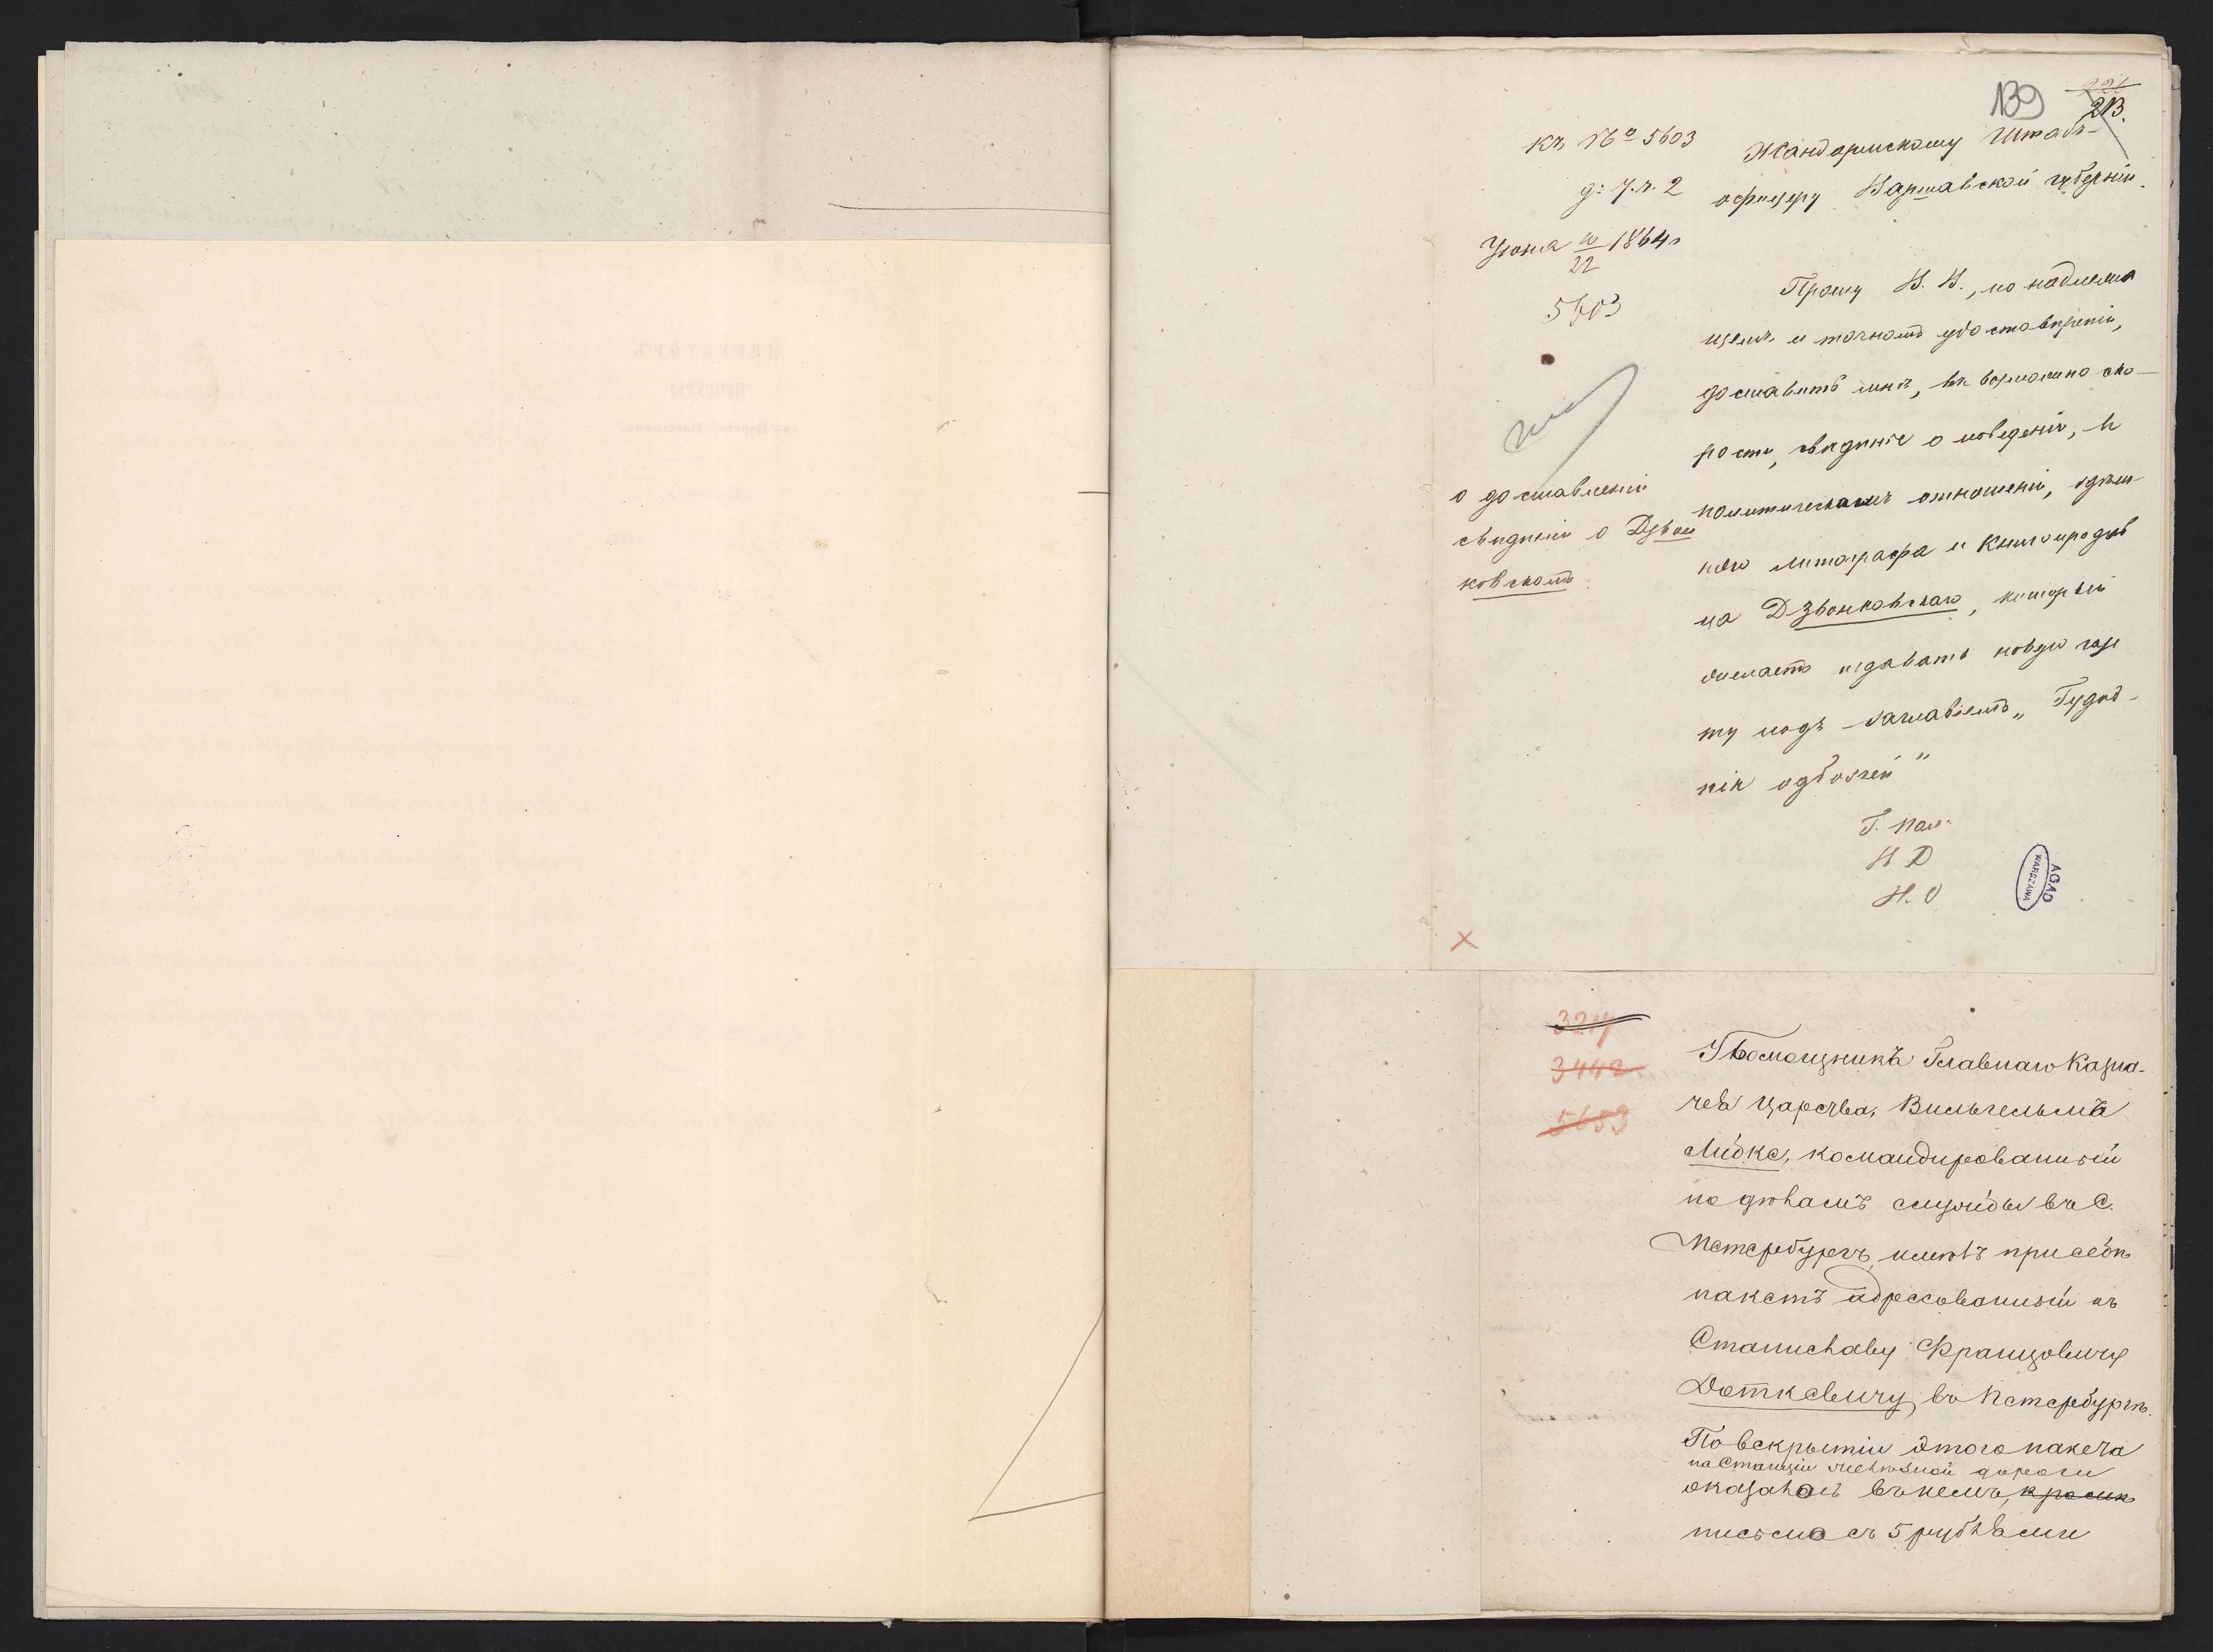 139
221
213.
къ № 5603
д: 7. л. 2
Іюня 10/22 1864 г
5603
о доставленіи
свѣдѣній о Дзвон
ковскомъ.
Жандармскому Штабъ-
офицеру Варшавской губерніи.
Прошу В. В., по надлежа
щемъ и точномъ удостовѣреніи,
доставить мнѣ, въ возможно ско-
рости, свѣдѣніе о поведеніи, и
политическомъ отношеніи, здѣш
няго литографа и книгопродав
ца Дзвонковскаго, который
желаетъ издавать новую газе
ту подъ заглавіемъ „Тыгод-
нік
Г. Пол.
Н Д
Н. О
AGAD
WARSZAWA
3217
3442
5653
Помощникъ Главнаго Казна-
чея Царства, Вильгельмъ
Либке, командированный
по дѣламъ службы въ С.
Петербургъ, имѣетъ при себѣ
пакетъ адрессованный къ
Станиславу Францовичу
Доткевичу, въ Петербургѣ.
По вскрытіи этого пакета
на Станціи желѣзной дороги
оказалось въ немъ, кромѣ
письмо съ 5 рублями